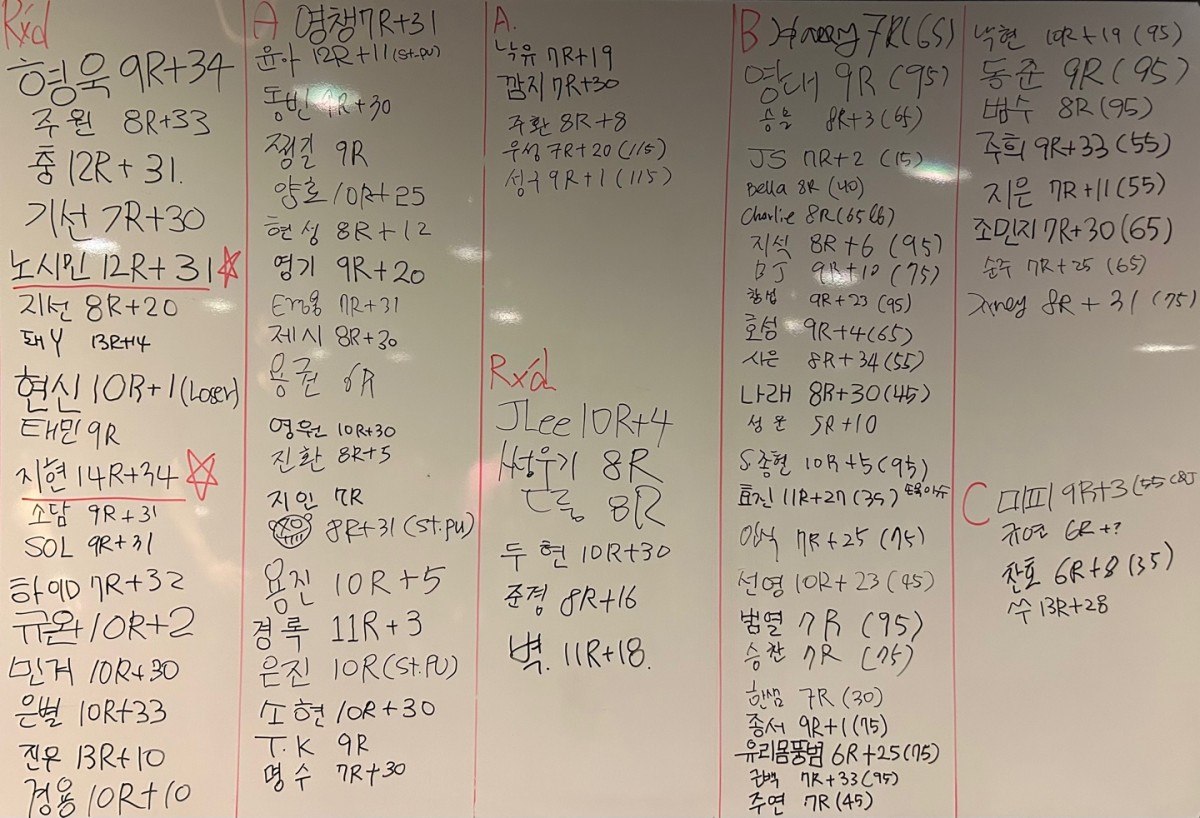 Rx'd
형욱 9R+34
주원 8R+33
충 12R+31.
기선 7R+30
노시민 12R+31
지선 8R+20
돼Y 13R+14
현신 10R+1 (Loser)
태민 9R
지현 14R+34
소담 9R+31
SOL 9R+31
하이D 7R+32
규완 10R+2
민거 10R+30
은별 10R+33
진우 13R+10
경용 10R+10
A 영챙 7R+31
윤아 12R+11 (st.pu)
동빈 9R+30
쨈길 9R
양호 10R+25
현성 8R+12
영기 9R+20
7R+31
제시 8R+30
용권 6R
영원 10R+30
진환 8R+5
지인 7R
8R+31 (st.pu)
용진 10R+5
경록 11R+3
은진 10R (St.PU)
소현 10R+30
T.K 9R
명수 7R+30
A.
낙유 7R+19
깜지 7R+30
주환 8R+8
우성 7R+20 (115)
성구 9R+1 (115)
Rx'd
JLee 10R+4
썽우기 8R
8R
두현 10R+30
준경 8R+16
벽. 11R+18.
B 7R (65)
영대 9R (95)
8R+3 (65)
JS 7R+2 (15)
Bella 8R (40)
Charlie 8R (65lb)
지식 8R+6 (95)
BJ 9R+10 (75)
9R+23 (95)
호성 9R+4 (65)
사은 8R+34 (55)
나래 8R+30 (45)
성운 5R+10
S.종현 10R+5 (95)
효진 11R+27 (35)
7R+25 (75)
선영 10R+23 (45)
범열 7R (95)
승찬 7R (75)
한샘 7R (30)
종서 9R+1 (75)
유리몸풍범 6R+25 (75)
7R+33 (95)
주연 7R (45)
낙현 10R+19 (95)
동준 9R (95)
범수 8R (95)
주희 9R+33 (55)
지은 7R+11 (55)
조민지 7R+30 (65)
순주 7R+25 (65)
8R+31 (75)
C 미피 9R+3 (55
규연 6R+?
찬호 6R+8 (35)
쑤 13R+28